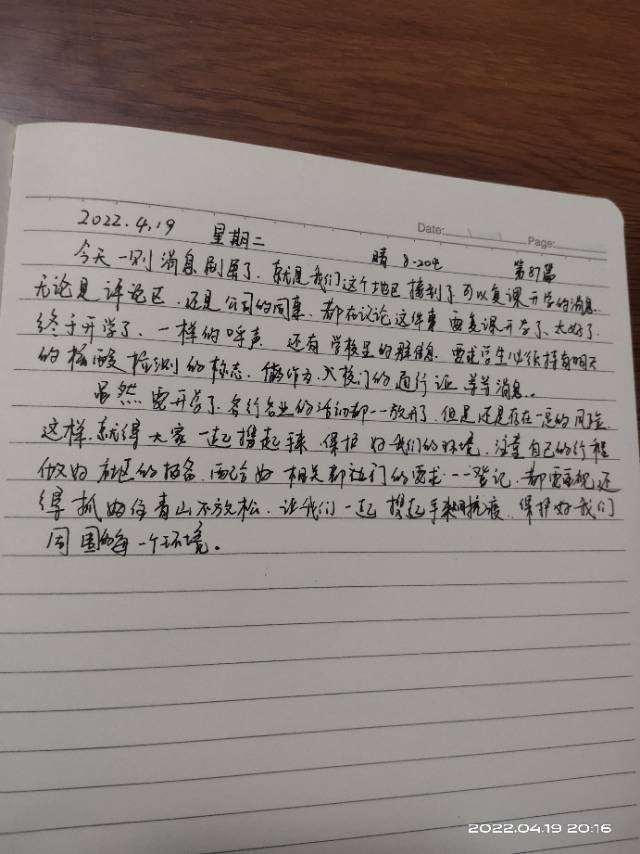 Date:
Page:
2022.4.19 星期二 晴 8-20℃ 第87篇
今天一则消息刷屏了，就是我们这个地区接到了可以复课开学的消息
无论是评论区，还是公司的同事，都在议论这件事 要复课开学了，太好了，
终于开学了，一样的呼声 还有学校里的群信息 要求学生必须持有明天
的核酸检测的标志，做作为入校门的通行证 等等消息..
虽然要开学了，各行各业的活动都一一放开了，但是还是存在一定的风险，
这样，就得大家一起携起手来，保护好我们的环境，注意自己的行程
做好社区的报备，配合好相关部门的要求一一登记，都要重视，还
得抓好住青山不放松，让我们一起携起手来抗疫，保护好我们
周围的每一个环境。
2022.04.19 20:16